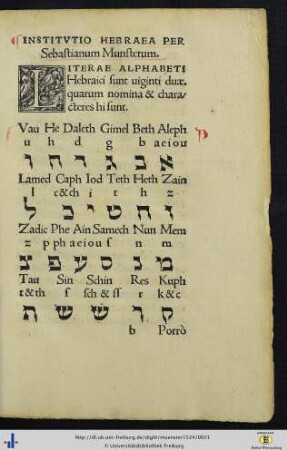 INSTITVTIO HEBRAEA PER
Sebastianum Munsterum.
LITERAE ALPHABETI
Hebraici sunt uiginti duæ,
quarum nomina & chara-
cteres hi sunt.
Vau He Daleth Gimel Beth Aleph
u h d g b aeiou
א ב ג ד ה ו
Lamed Caph Iod Teth Heth Zain
l c&ch i t h z
ז ח ט י כ ל
Zadic Phe Ain Samech Nun Mem
z p ph aeiou ſ n m
מ נ ס ע פ צ
Tau Sin Schin Res Kuph
t&th ſ ſch & ſſ r k&c
ק ר ש ש ת
b Porrò
http://dl.ub.uni-freiburg.de/diglit/muenster1524/0021
© Universitätsbibliothek Freiburg